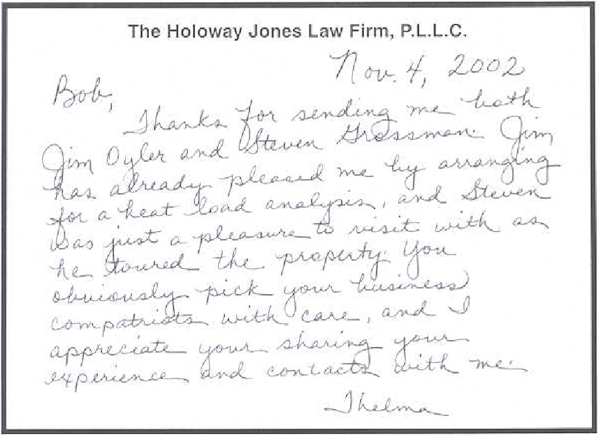 The Holoway Jones Law Firm, P.L.L.C.
Nov. 4, 2002
Bob,
Thanks for sending me both
Jim Oyler and Steven Grossman. Jim
has already pleased me by arranging
for a heat load analysis, and Steven
was just a pleasure to visit with as
he toured the property. You
obviously pick your business
compatriots with care, and I
appreciate your sharing your
experience and contacts with me.
Thelma